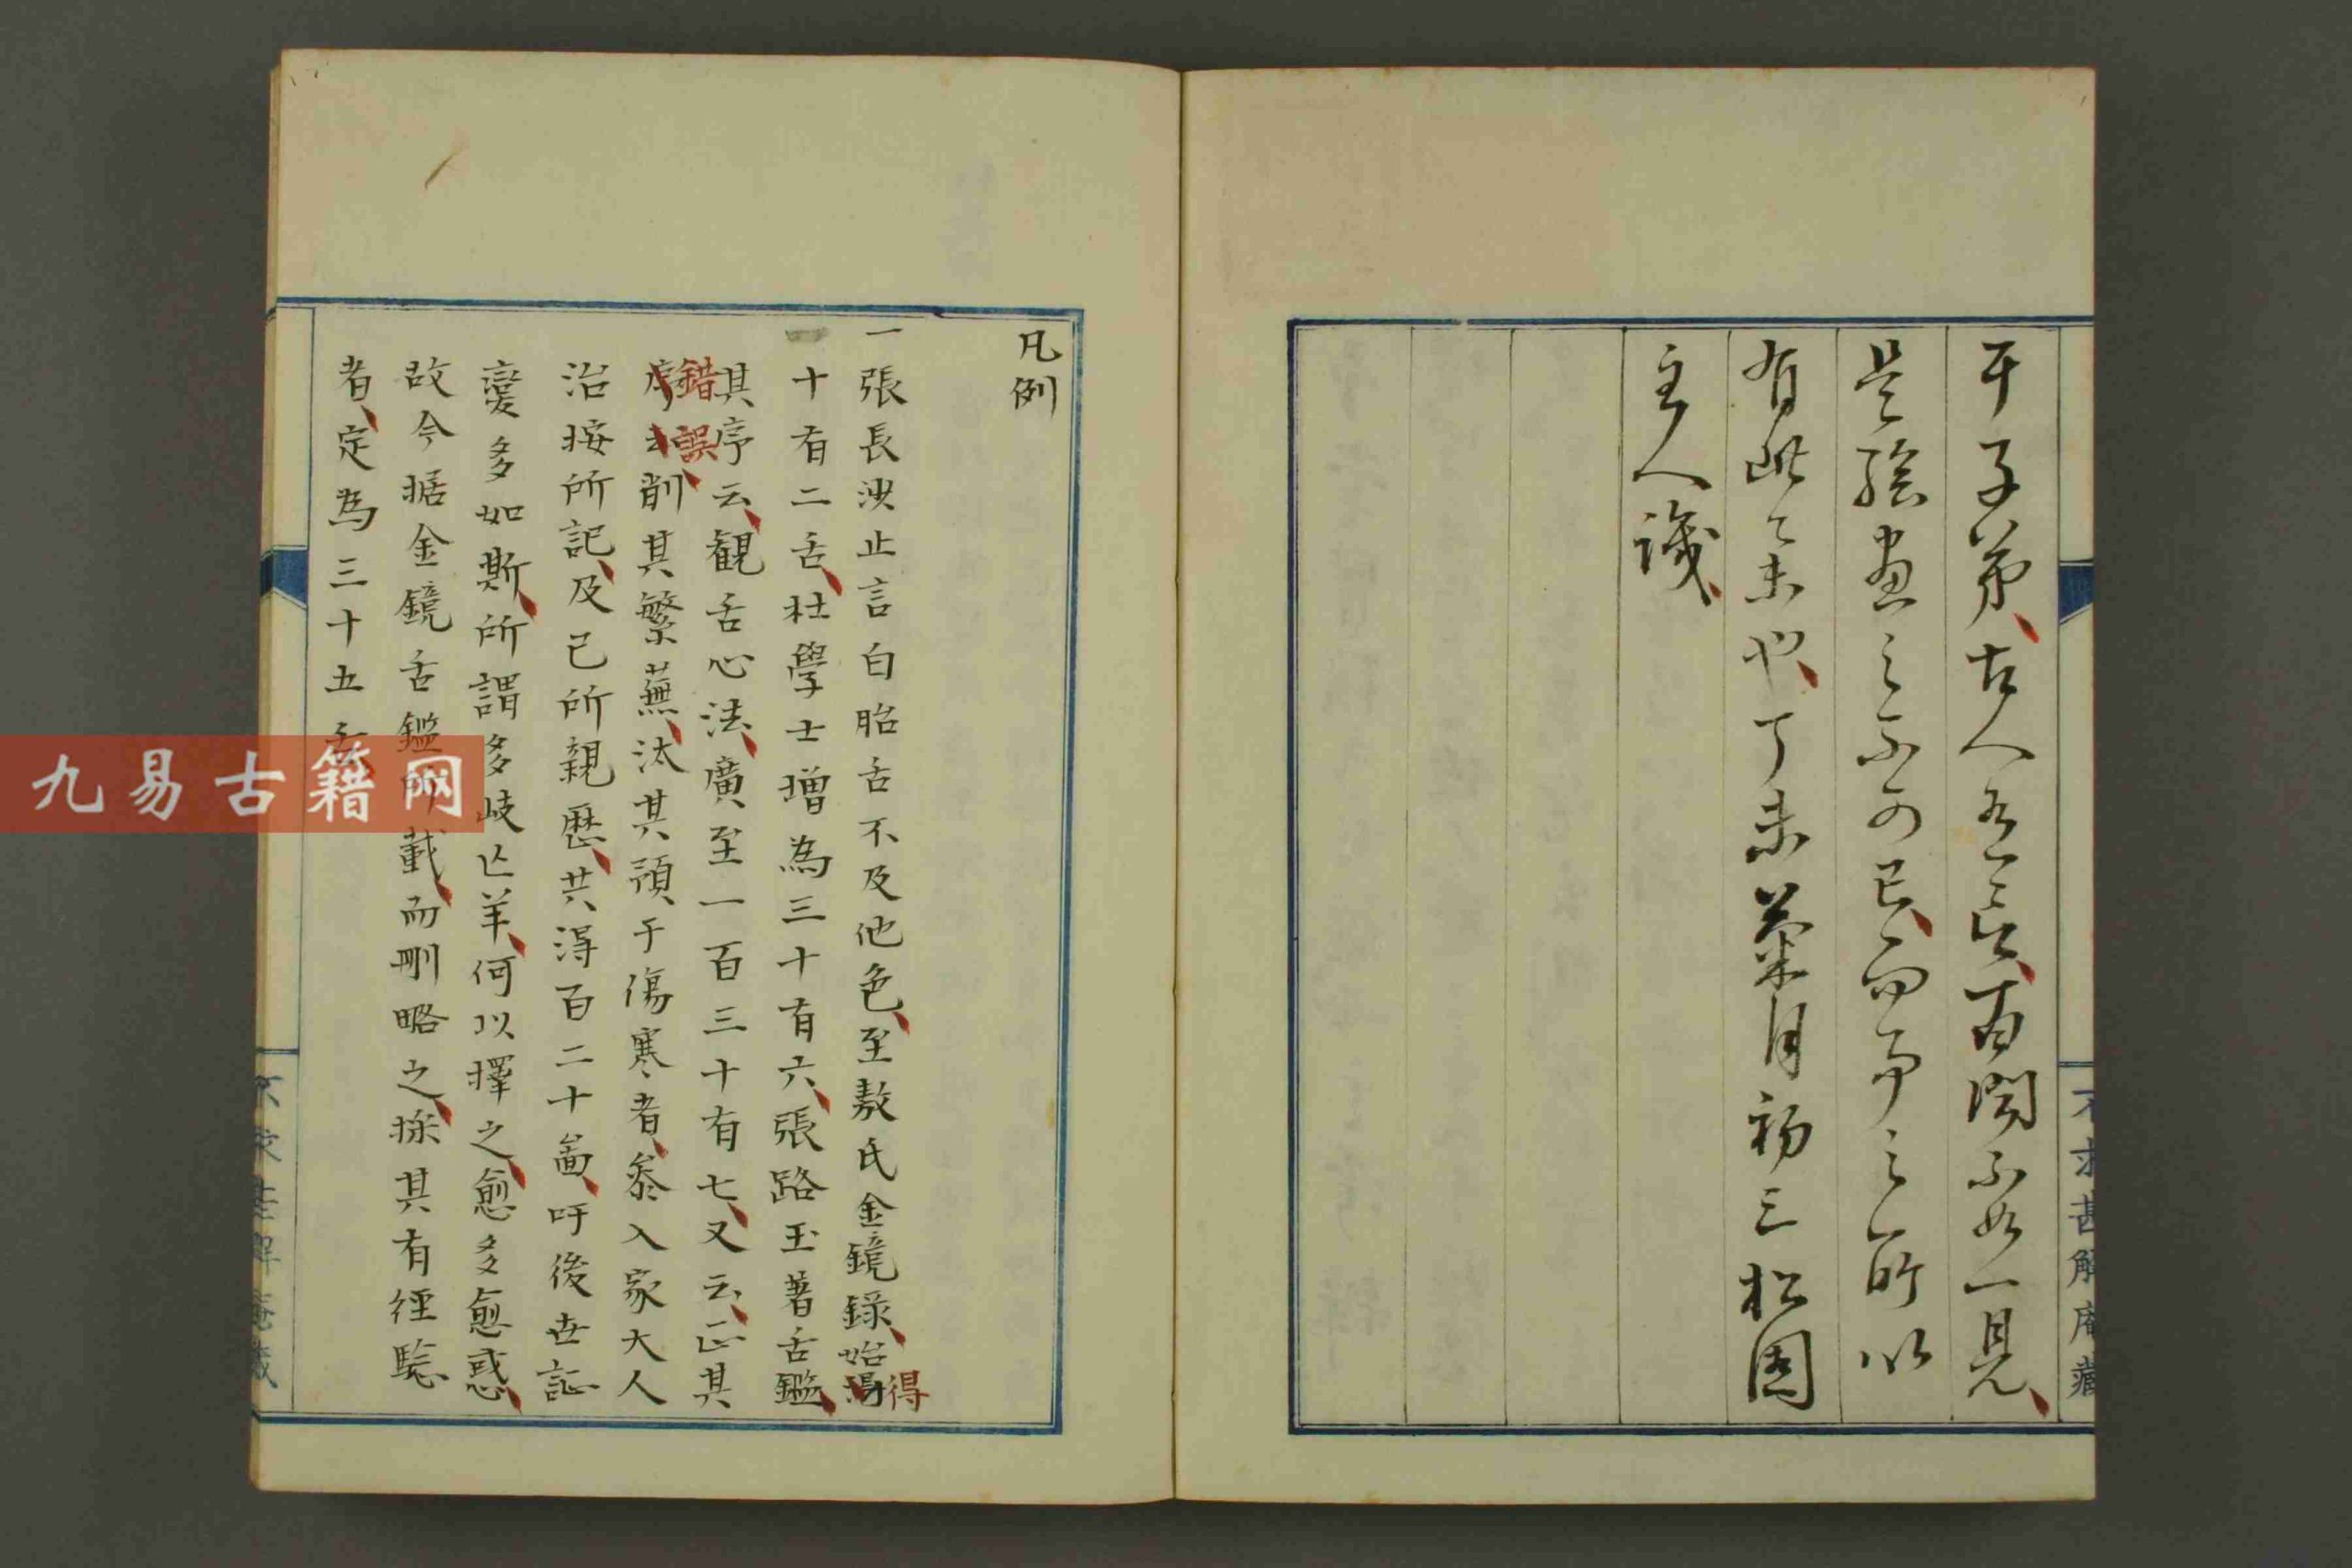 于子弟、古人有言、百聞不如一見、
是繪畫之不可已、而予之所以
有此之未也、丁未菊月初三松園
主人識、
不求甚解庵藏
凡例
一張長沙止言白胎舌不及他色、至敖氏金鏡錄、始得
十有二舌、杜學士增為三十有六、張路玉著舌鑑、
其序云、觀舌心法、廣至一百三十有七、又云、正其
錯誤、削其繁蕪、汰其預于傷寒者、叅入家大人
治按所記、及己所親歷、共得百二十啚、吁後世証
變多如斯、所謂多歧亡羊、何以擇之、愈多愈惑、
故今据金鏡舌鑑所載、而刪略之、採其有徑驗
者、定為三十五舌
不求甚解庵藏
九易古籍网